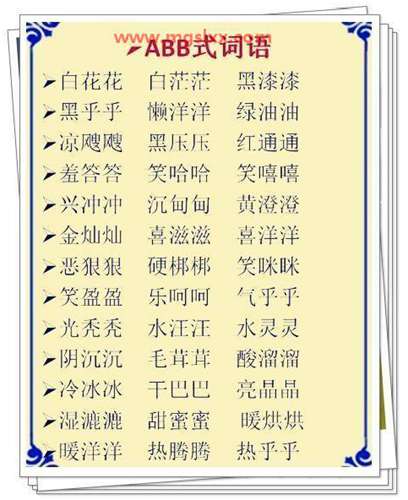 www.mgsbxx.com
➤ABB式词语
➤白花花 白茫茫 黑漆漆
➤黑乎乎 懒洋洋 绿油油
➤凉飕飕 黑压压 红通通
➤羞答答 笑哈哈 笑嘻嘻
➤兴冲冲 沉甸甸 黄澄澄
➤金灿灿 喜滋滋 喜洋洋
➤恶狠狠 硬梆梆 笑咪咪
➤笑盈盈 乐呵呵 气乎乎
➤光秃秃 水汪汪 水灵灵
➤阴沉沉 毛茸茸 酸溜溜
➤冷冰冰 干巴巴 亮晶晶
➤湿漉漉 甜蜜蜜 暖烘烘
➤暖洋洋 热腾腾 热乎乎